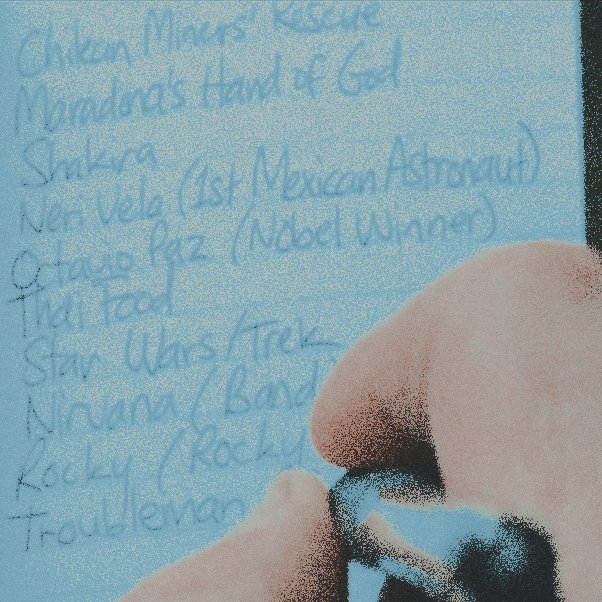 Chilean Miners' Rescue
Maradona's Hand of God
Shakira
Neri Vela (1st Mexican Astronaut)
Octavio Paz (Nobel Winner)
Thai Food
Star Wars/Trek
Nirvana (Band
Rocky (Rocky
Troubleman